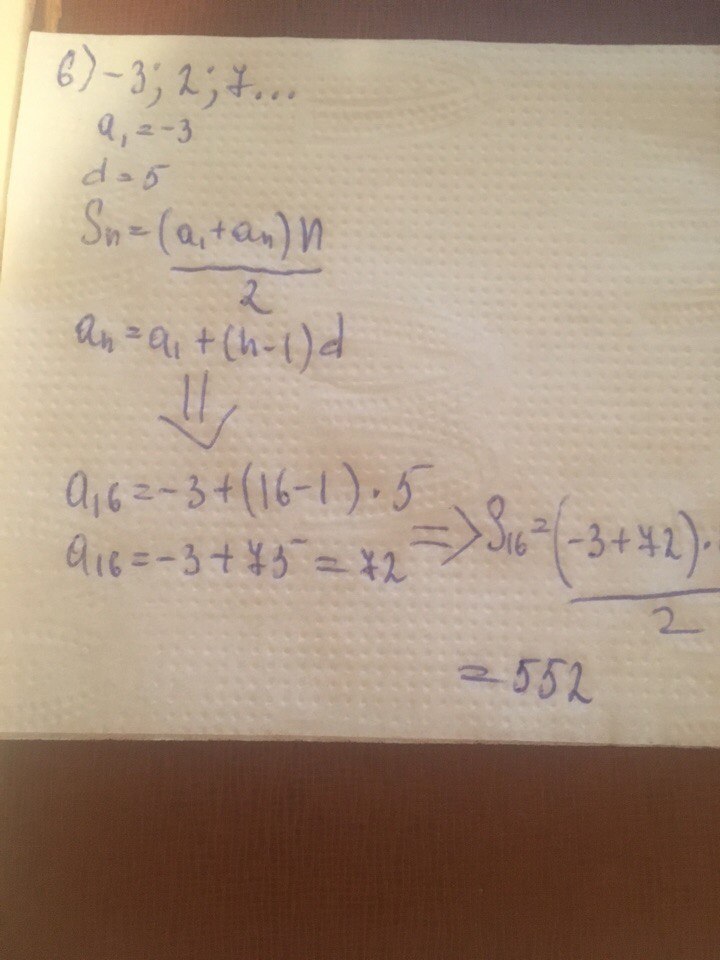 6) -3; 2; 7...
a₁ = -3
d = 5
Sₙ = (a₁+aₙ)n
2
aₙ = a₁ + (n-1)d
⇓
a₁₆ = -3+(16-1)·5
a₁₆ = -3+75 = 72 => S₁₆ = (-3+72)·
2
= 552